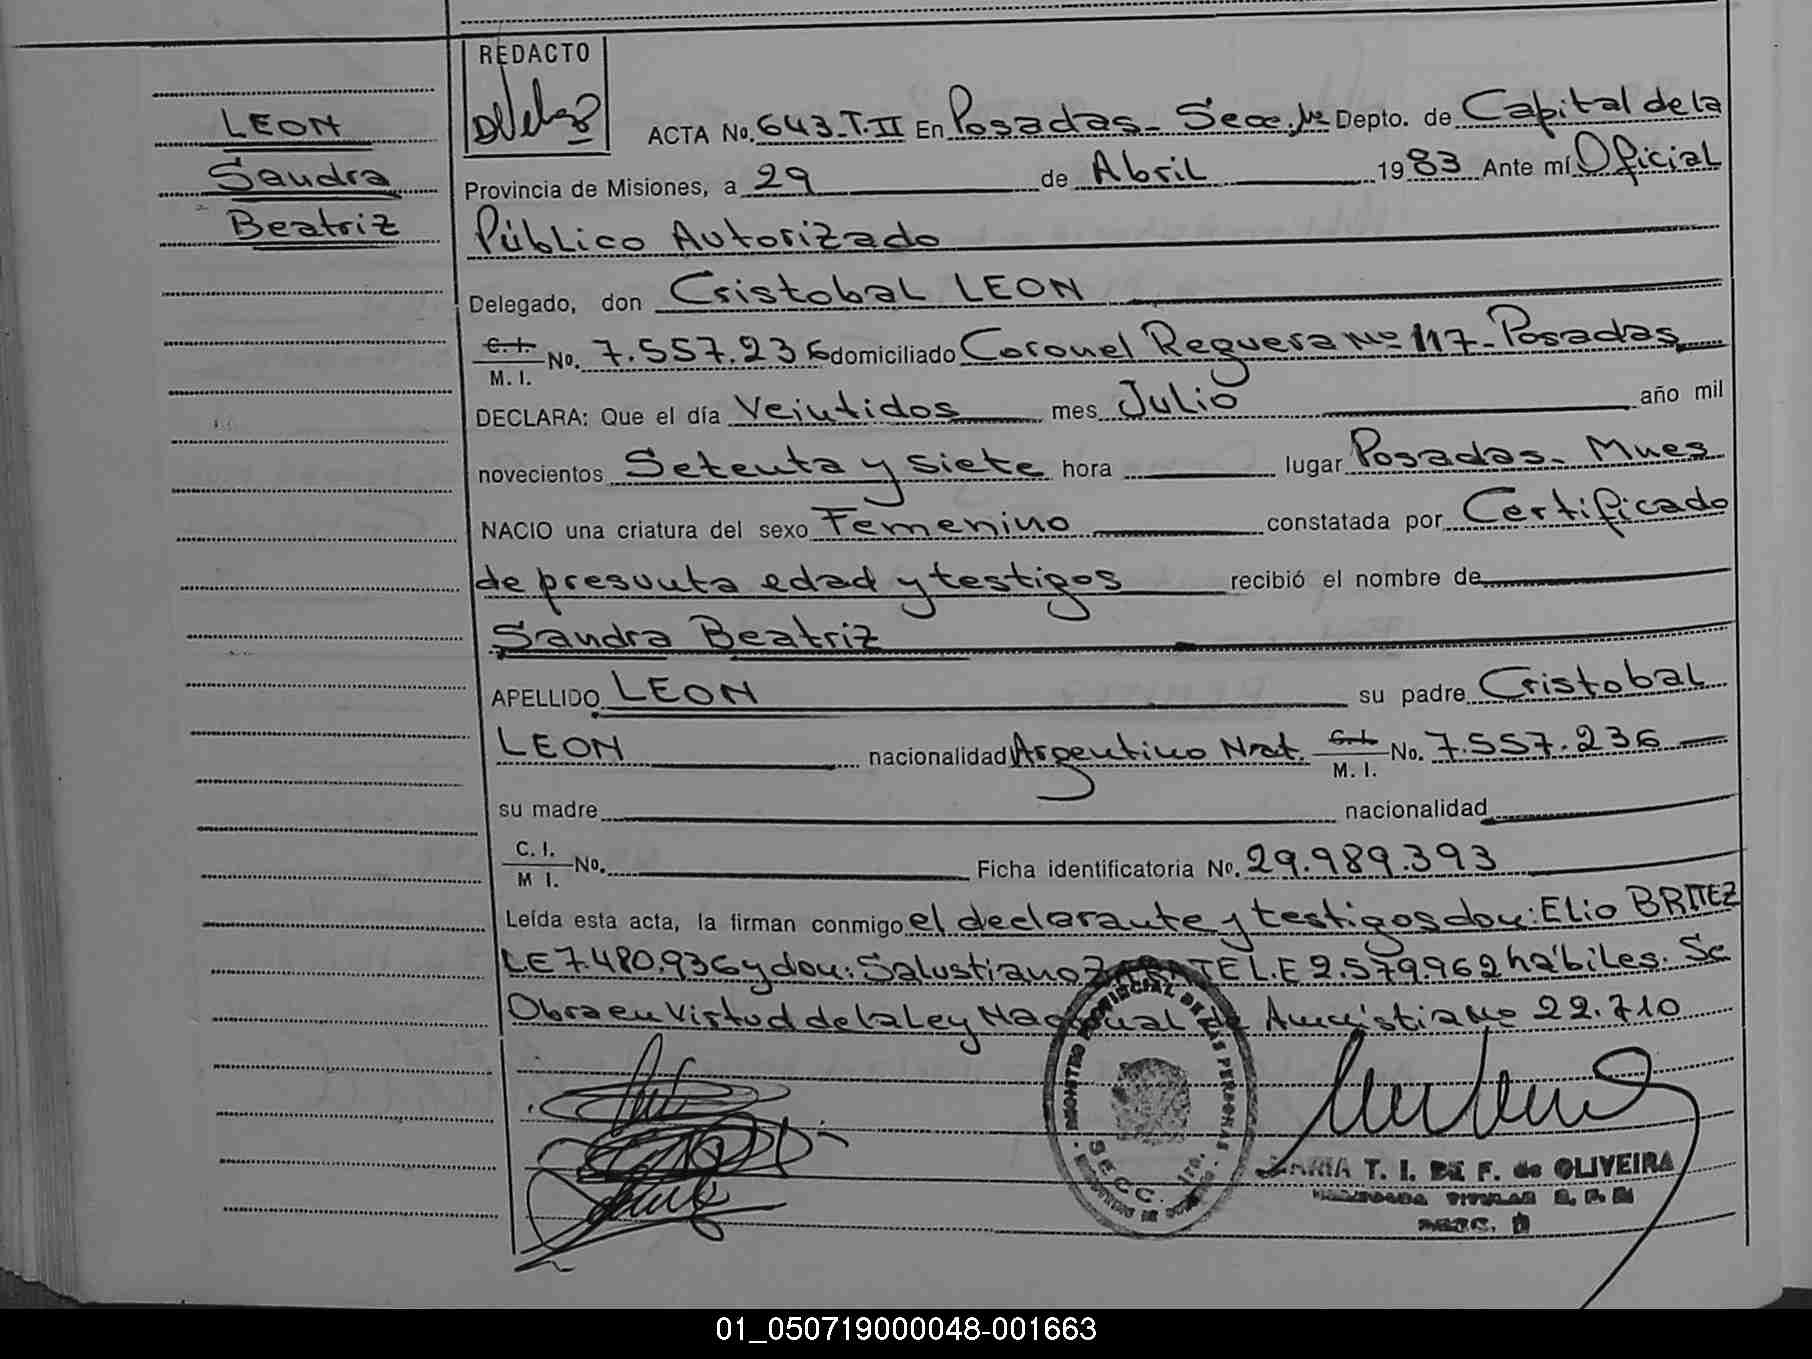 REDACTO
LEON
Sandra
Beatriz
ACTA No. 643-T.II En Posadas- Secc. 1ra Depto. de Capital de la
Provincia de Misiones, a 29 de Abril 1983 Ante mí Oficial
Público Autorizado
Delegado, don Cristobal LEON
C.I. / M.I. No. 7.557.236 domiciliado Coronel Reguera Nº 117- Posadas
DECLARA: Que el día Veintidos mes Julio año mil
novecientos Setenta y siete hora lugar Posadas- Mnes
NACIO una criatura del sexo Femenino constatada por Certificado
de presunta edad y testigos recibió el nombre de
Sandra Beatriz
APELLIDO LEON su padre Cristobal
LEON nacionalidad Argentino Nat. C.I. / M.I. No. 7.557.236
su madre nacionalidad
C.I. / M I. No. Ficha identificatoria No. 29.989.393
Leída esta acta, la firman conmigo el declarante y testigos don: Elio BRITEZ
LE 7.480.936 y don: Salustiano ZARATE L.E 2.579.962 hábiles. Se
Obra en Virtud de la Ley Nacional de Amnistia Nº 22.710
REGISTRO PROVINCIAL DE LAS PERSONAS
SECC. 1ra.
MARIA T. I. DE F. de OLIVEIRA
01_050719000048-001663